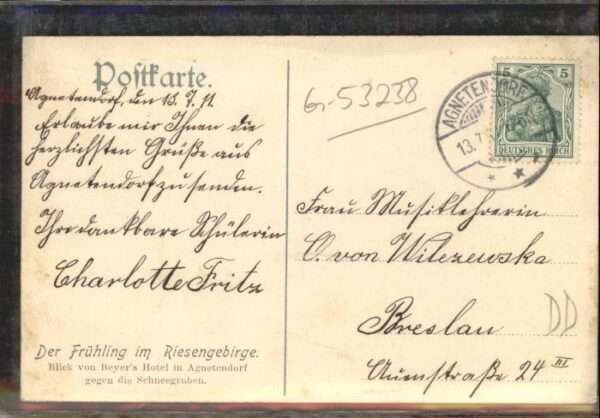 Postkarte.
Agnetendorf, den 13. 7. 11.
Erlaube mir Ihnen die
herzlichsten Grüße aus
Agnetendorf zu senden.
Ihre dankbare Schülerin
Charlotte Fritz
Der Frühling im Riesengebirge.
Blick von Beyer's Hotel in Agnetendorf
gegen die Schneegruben.
G-53238
AGNETENDORF
13.7
5 5
DEUTSCHES REICH
Frau Musiklehrerin
O. von Wilczewska
Breslau
DD
Auenstraße 24 III